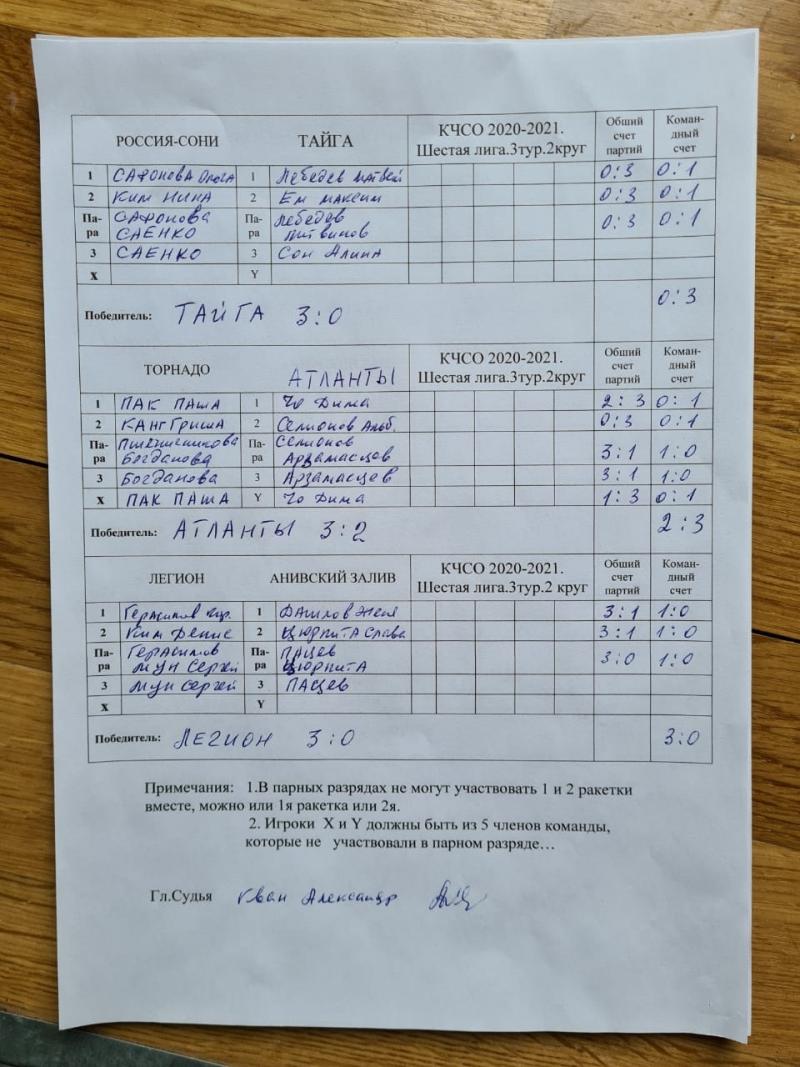 РОССИЯ-СОНИ ТАЙГА КЧСО 2020-2021. Шестая лига.3тур.2круг Обший счет партий Коман-дный счет
1 САФОНОВА ОЛЬГА 1 Лебедев МАТВЕЙ 0:3 0:1
2 КИМ НИНА 2 ЕМ МАКСИМ 0:3 0:1
Па-ра САФОНОВА САЕНКО Па-ра Лебедев Литвинов 0:3 0:1
3 САЕНКО 3 СОН АЛИНА
X Y
0:3
Победитель: ТАЙГА 3:0
ТОРНАДО АТЛАНТЫ КЧСО 2020-2021. Шестая лига.3тур.2круг Обший счет партий Коман-дный счет
1 ПАК ПАША 1 Чо Дима 2:3 0:1
2 КАНГ ГРИША 2 Семионов Альб. 0:3 0:1
Па-ра Пшеничникова Богданова Па-ра Семионов Арзамасцев 3:1 1:0
3 Богданова 3 Арзамасцев 3:1 1:0
X ПАК ПАША Y Чо Дима 1:3 0:1
Победитель: АТЛАНТЫ 3:2 2:3
ЛЕГИОН АНИВСКИЙ ЗАЛИВ КЧСО 2020-2021. Шестая лига.3тур.2 круг Обший счет партий Коман-дный счет
1 Герасимов 1 3:1 1:0
2 Ким Денис 2 Цюрпита Слава 3:1 1:0
Па-ра Герасимов Мун Сергей Па-ра ПАЦЕВ Цюрпита 3:0 1:0
3 Мун Сергей 3 ПАЦЕВ
X Y
Победитель: ЛЕГИОН 3:0 3:0
Примечания: 1.В парных разрядах не могут участвовать 1 и 2 ракетки
вместе, можно или 1я ракетка или 2я.
2. Игроки X и Y должны быть из 5 членов команды,
которые не участвовали в парном разряде…
Гл.Судья Кван Александр